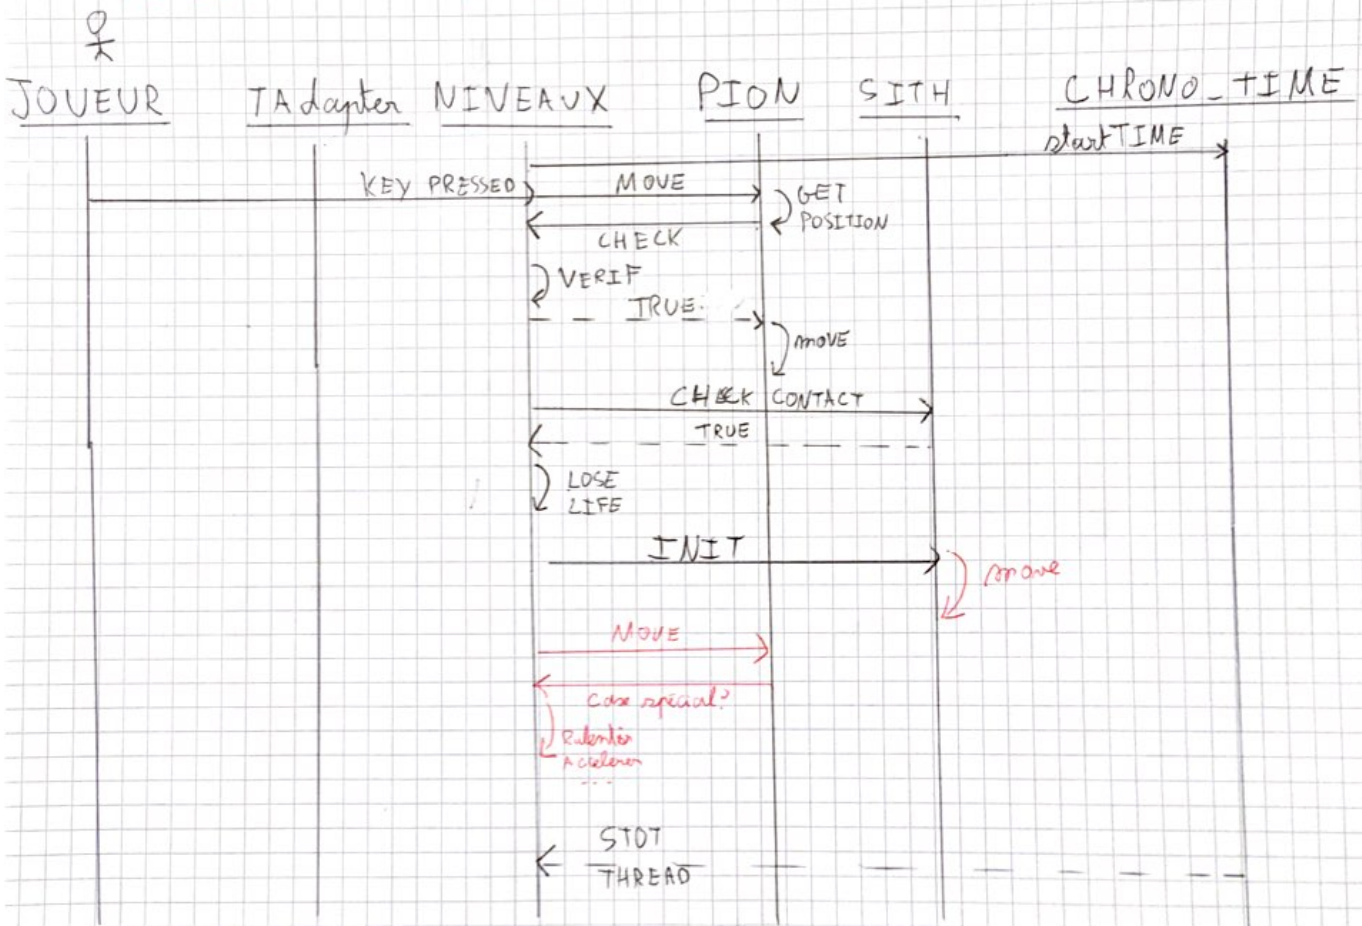 JOUEUR TAdapter NIVEAUX PION SITH CHRONO_TIME
startTIME
KEY PRESSED MOVE GET
POSITION
CHECK
VERIF
TRUE
MOVE
CHECK CONTACT
TRUE
LOSE
LIFE
INIT
move
MOVE
Case spécial?
Ralentir
Accelerer
...
STOT
THREAD